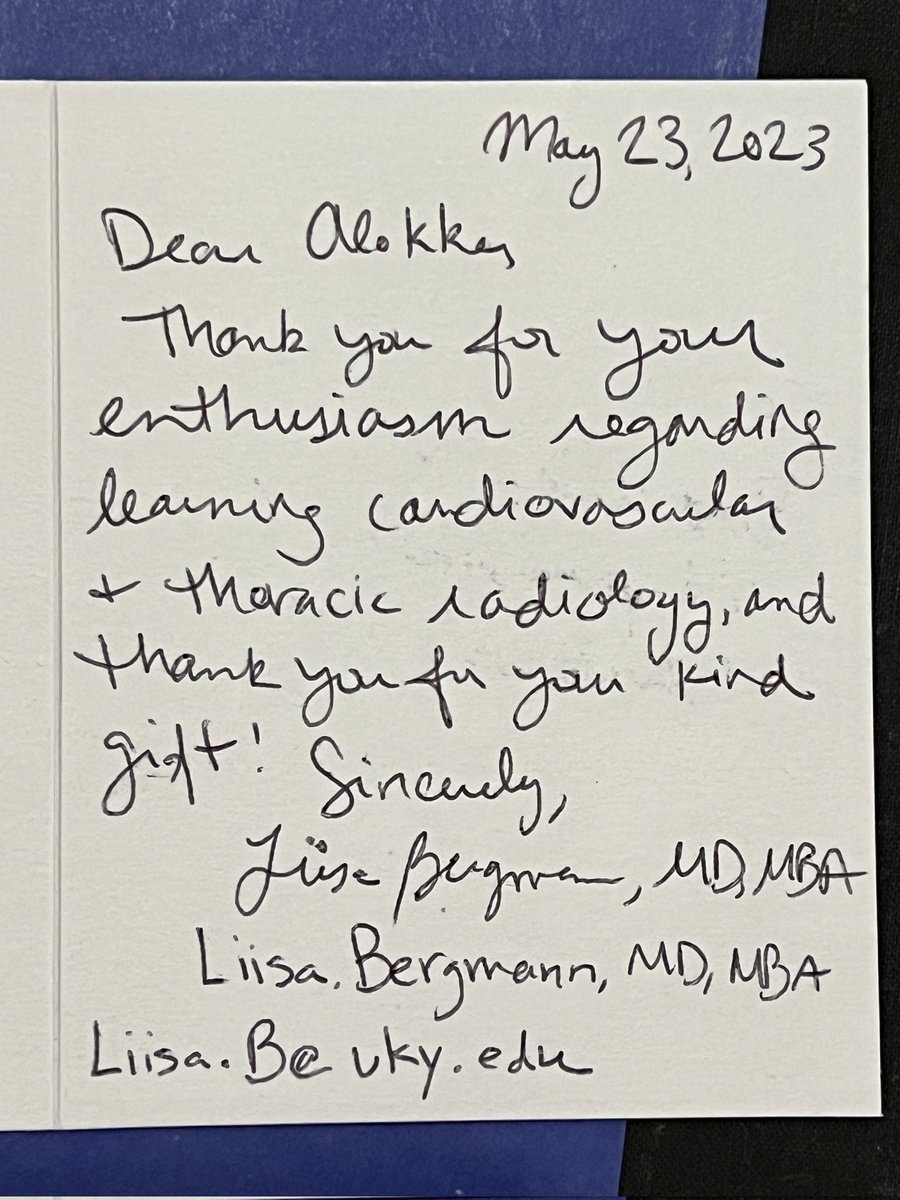 May 23, 2023
Dear Alokkay,
Thank you for your
enthusiasm regarding
learning cardiovascular
+ thoracic radiology, and
thank you for your kind
gift!
Sincerely,
Liisa Bergmann, MD, MBA
Liisa. Bergmann, MD, MBA
Liisa.B@uky.edu